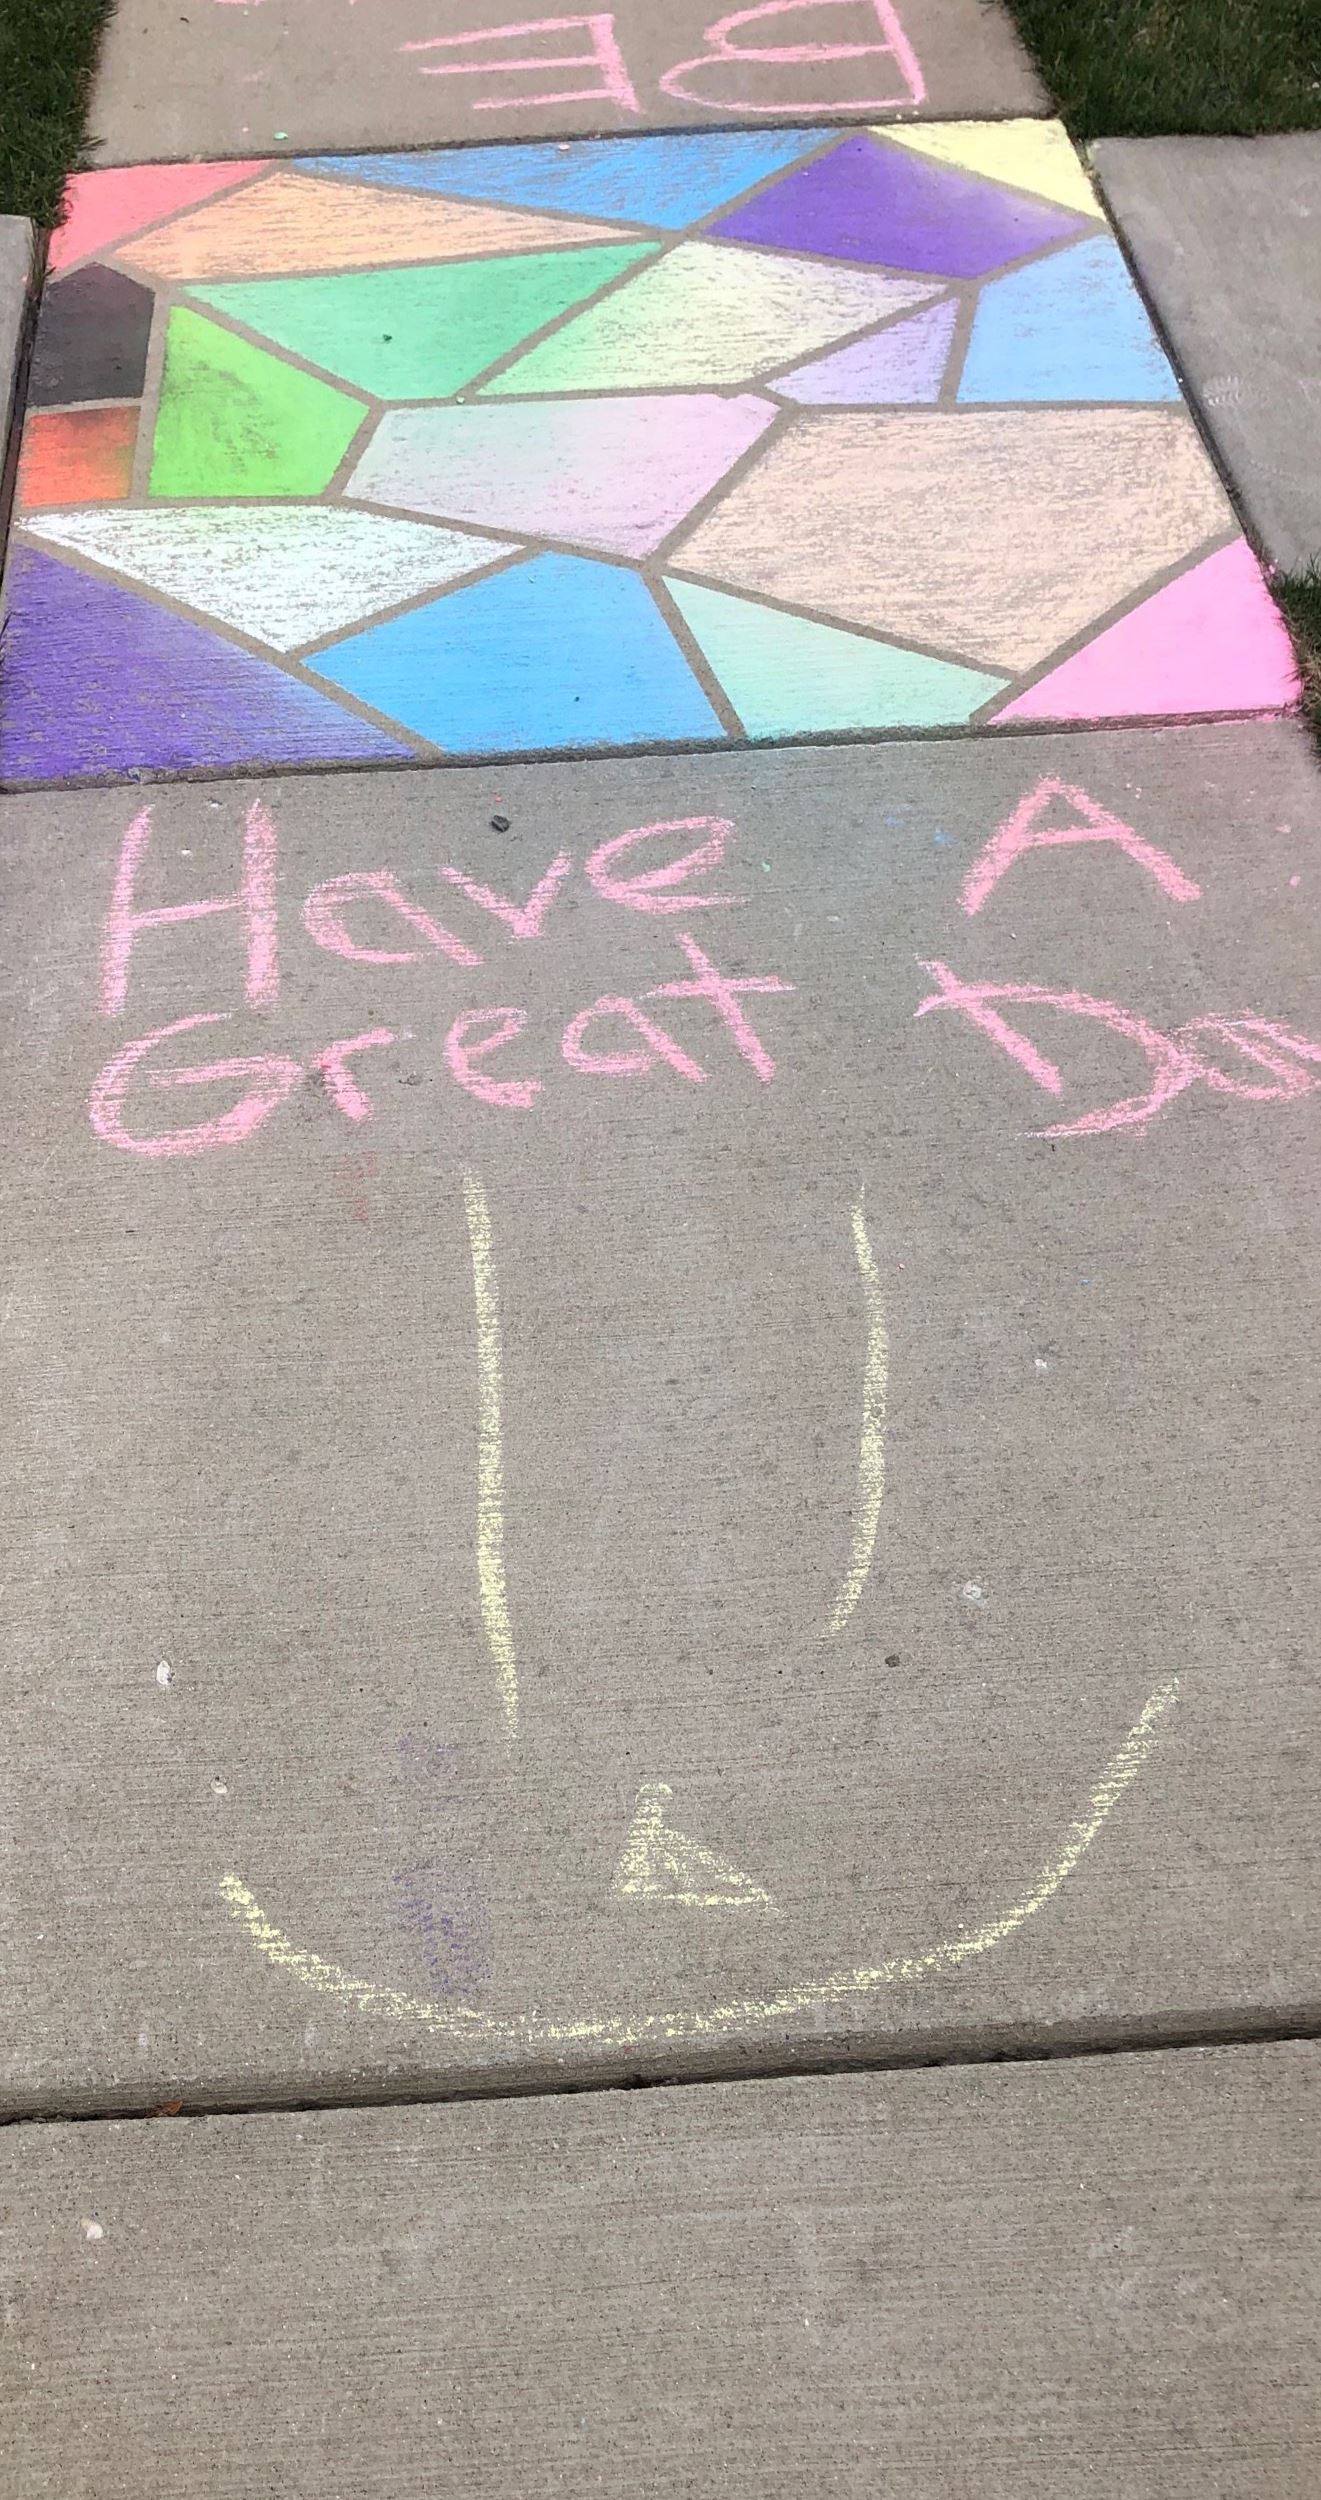 BE
Have A
Great Da